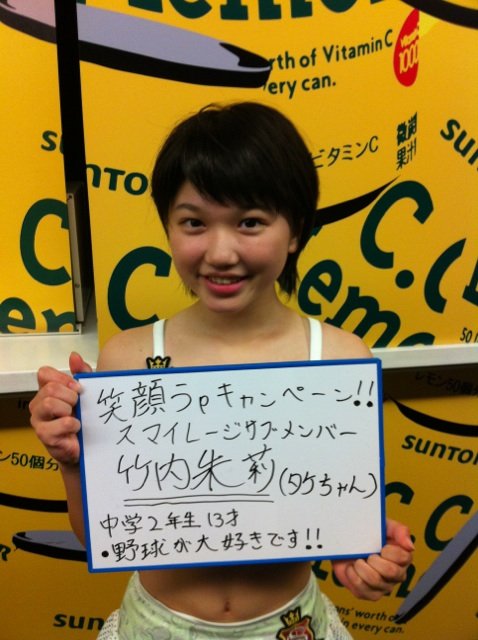 orth of Vitamin C
very can.
Vitamin C
1000
SUNTO
ビタミンC
果汁
C.C
Lemo
SUNTOR
レモン50個
モン50個分
笑顔うpキャンペーン!!
スマイレージサブメンバー
竹内朱莉(タケちゃん)
中学2年生13才
•野球が大好きです!!
sun
ons' worth of
in every can.